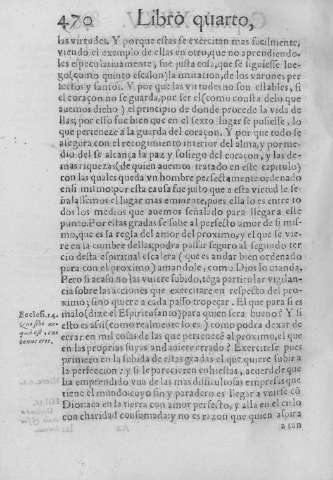 470 Libro quarto,
las virtudes. Y porque estas se exercitan mas facilmente,
viendo el exemplo de ellas en otro, que no aprendiendo-
les especulatiuamente, fue justa cosa, que se siguiesse lue-
go (como quinto escalon) la imitacion, de los varones per
fectos y santos. Y por que las virtudes no son estables, si
el coraçon no se guarda, por ser el (como consta de lo que
auemos dicho) el principio de donde procede la vida de
llas; por esso fue bien que en el sexto lugar se pusiesse, lo
que perteneze a la guarda del coraçon. Y por que todo se
assegura con el recogimiento interior del alma, y por me-
dio del se alcança la paz y sosiego del coraçon, y las de-
mas riquezas (de quien auemos tratado en este capitulo)
con las quales queda vn hombre perfectamente ordenado
en si mismo: por esta causa fue justo que a esta virtud se se
ñalassemos el lugar mas eminente, pues ella lo es entre to
dos los medios que auemos señalado para llegar a este
punto. Por estas gradas se sube al perfecto amor de si mis-
mo, que es la regla del amor del proximo, y el que se vie
re en la cumbre dellas, podra passar seguro al segundo ter
cio desta espiritual escalera (que es andar bien ordenado
para con el proximo) amandole, como Dios lo manda.
Pero si acaso no las vuiere subido, tega particular vigilan-
cia sobre las aciones que exercitare en respeto del pro-
ximo, sino quiere a cada passo tropeçar. El que para si es
Ecclesi. 14. malo (dize el Espiritu santo) para quien sera bueno? Y si
esto es assi (como realmente lo es) como podra dexar de
errar en mil cosas de las que perteneze al proximo, el que
en las proprias suyas anduuiere errado? Exercitese pues
primero en la subida de estas gradas el que quiere subir a
la perfeccion: y si le parecieren enhiestas, acuerdese que
ha emprendido vna de las mas dificultosas empresas que
tiene el mundo: cuyo fin y paradero es llegar a vnirse cõ
Dios aca en la tierra con amor perfecto, y alla en el cielo
con charidad consumada: y no es razon que quien aspira
a tan